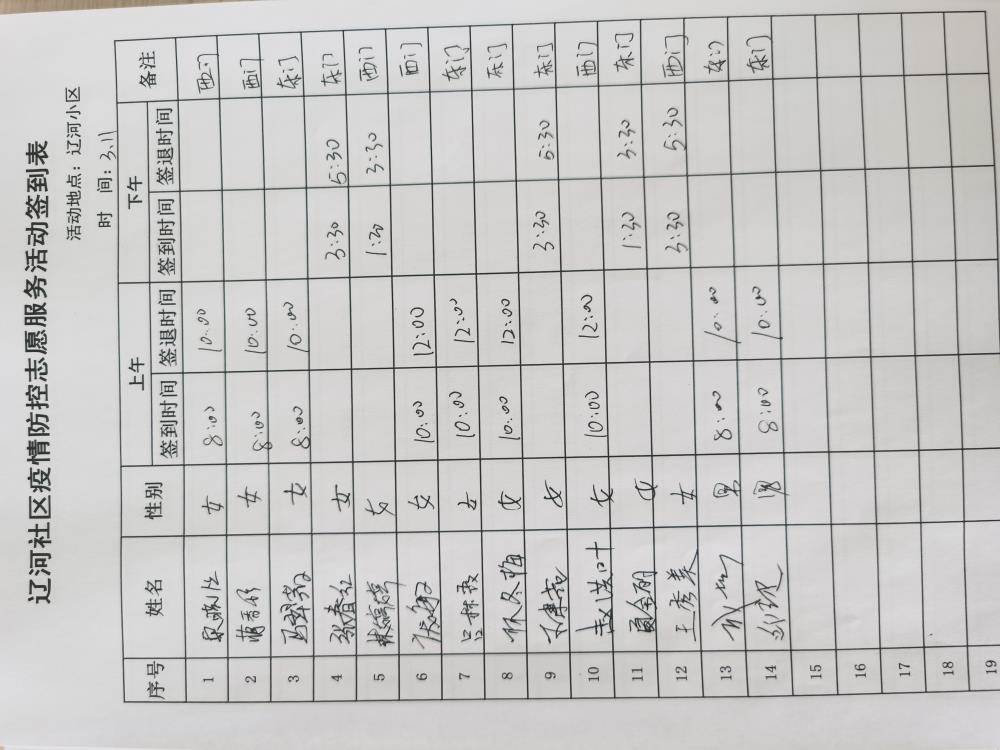 辽河社区疫情防控志愿服务活动签到表
活动地点：辽河小区
时 间：3.11
序号 姓名 性别 上午 下午 备注
签到时间 签退时间 签到时间 签退时间
1 女 8:00 10:00 西门
2 女 8:00 10:00 西门
3 女 8:00 10:00 东门
4 张春红 女 3:30 5:30 东门
5 女 1:30 3:30 西门
6 女 10:00 12:00 西门
7 女 10:00 12:00 东门
8 林冬梅 女 10:00 12:00 东门
9 女 3:30 5:30 东门
10 女 10:00 12:00 西门
11 女 1:30 3:30 东门
12 王秀英 女 3:30 5:30 西门
13 男 8:00 10:00 东门
14 男 8:00 10:00 东门
15
16
17
18
19